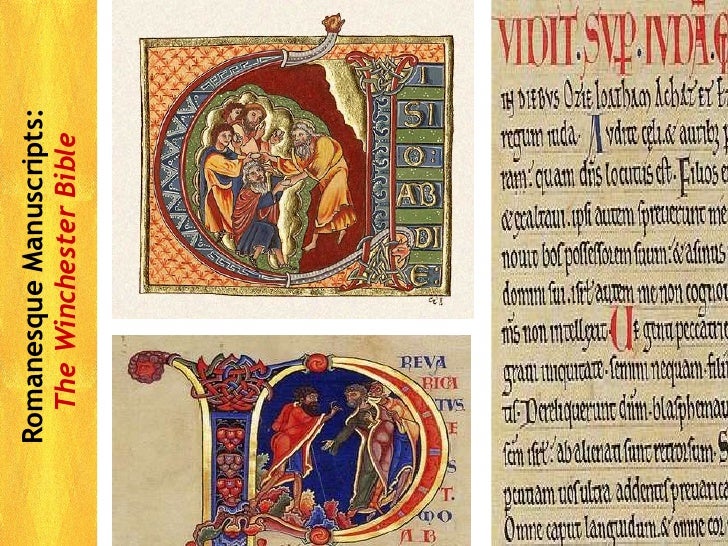 Romanesque Manuscripts:
The Winchester Bible
V
ISI
O:
AB
DI
E
P
REVA
RICA
TVS
E
S
T.
MO
AB
VIDIT. SVP. IVDA
IN DIEBUS Ozie Ioatham Achaz et
regum iuda. Audite celi, & auribus
ram: quam dns locutus est. Filios e
& exaltaui. ipsi autem spreuerunt me
nouit bos possessorem suum: & asinus
domini sui. isrl autem me non cogno
m's non intellexit. Ue genti peccatrici
graui iniquitate. semini nequam. filii
tis. Dereliquerunt dnm. blasphemau
scm isrl: ab alienati sunt retrorsum. S
cutiam uos ultra addentes preuarica
Omne caput languidum. & omne cor